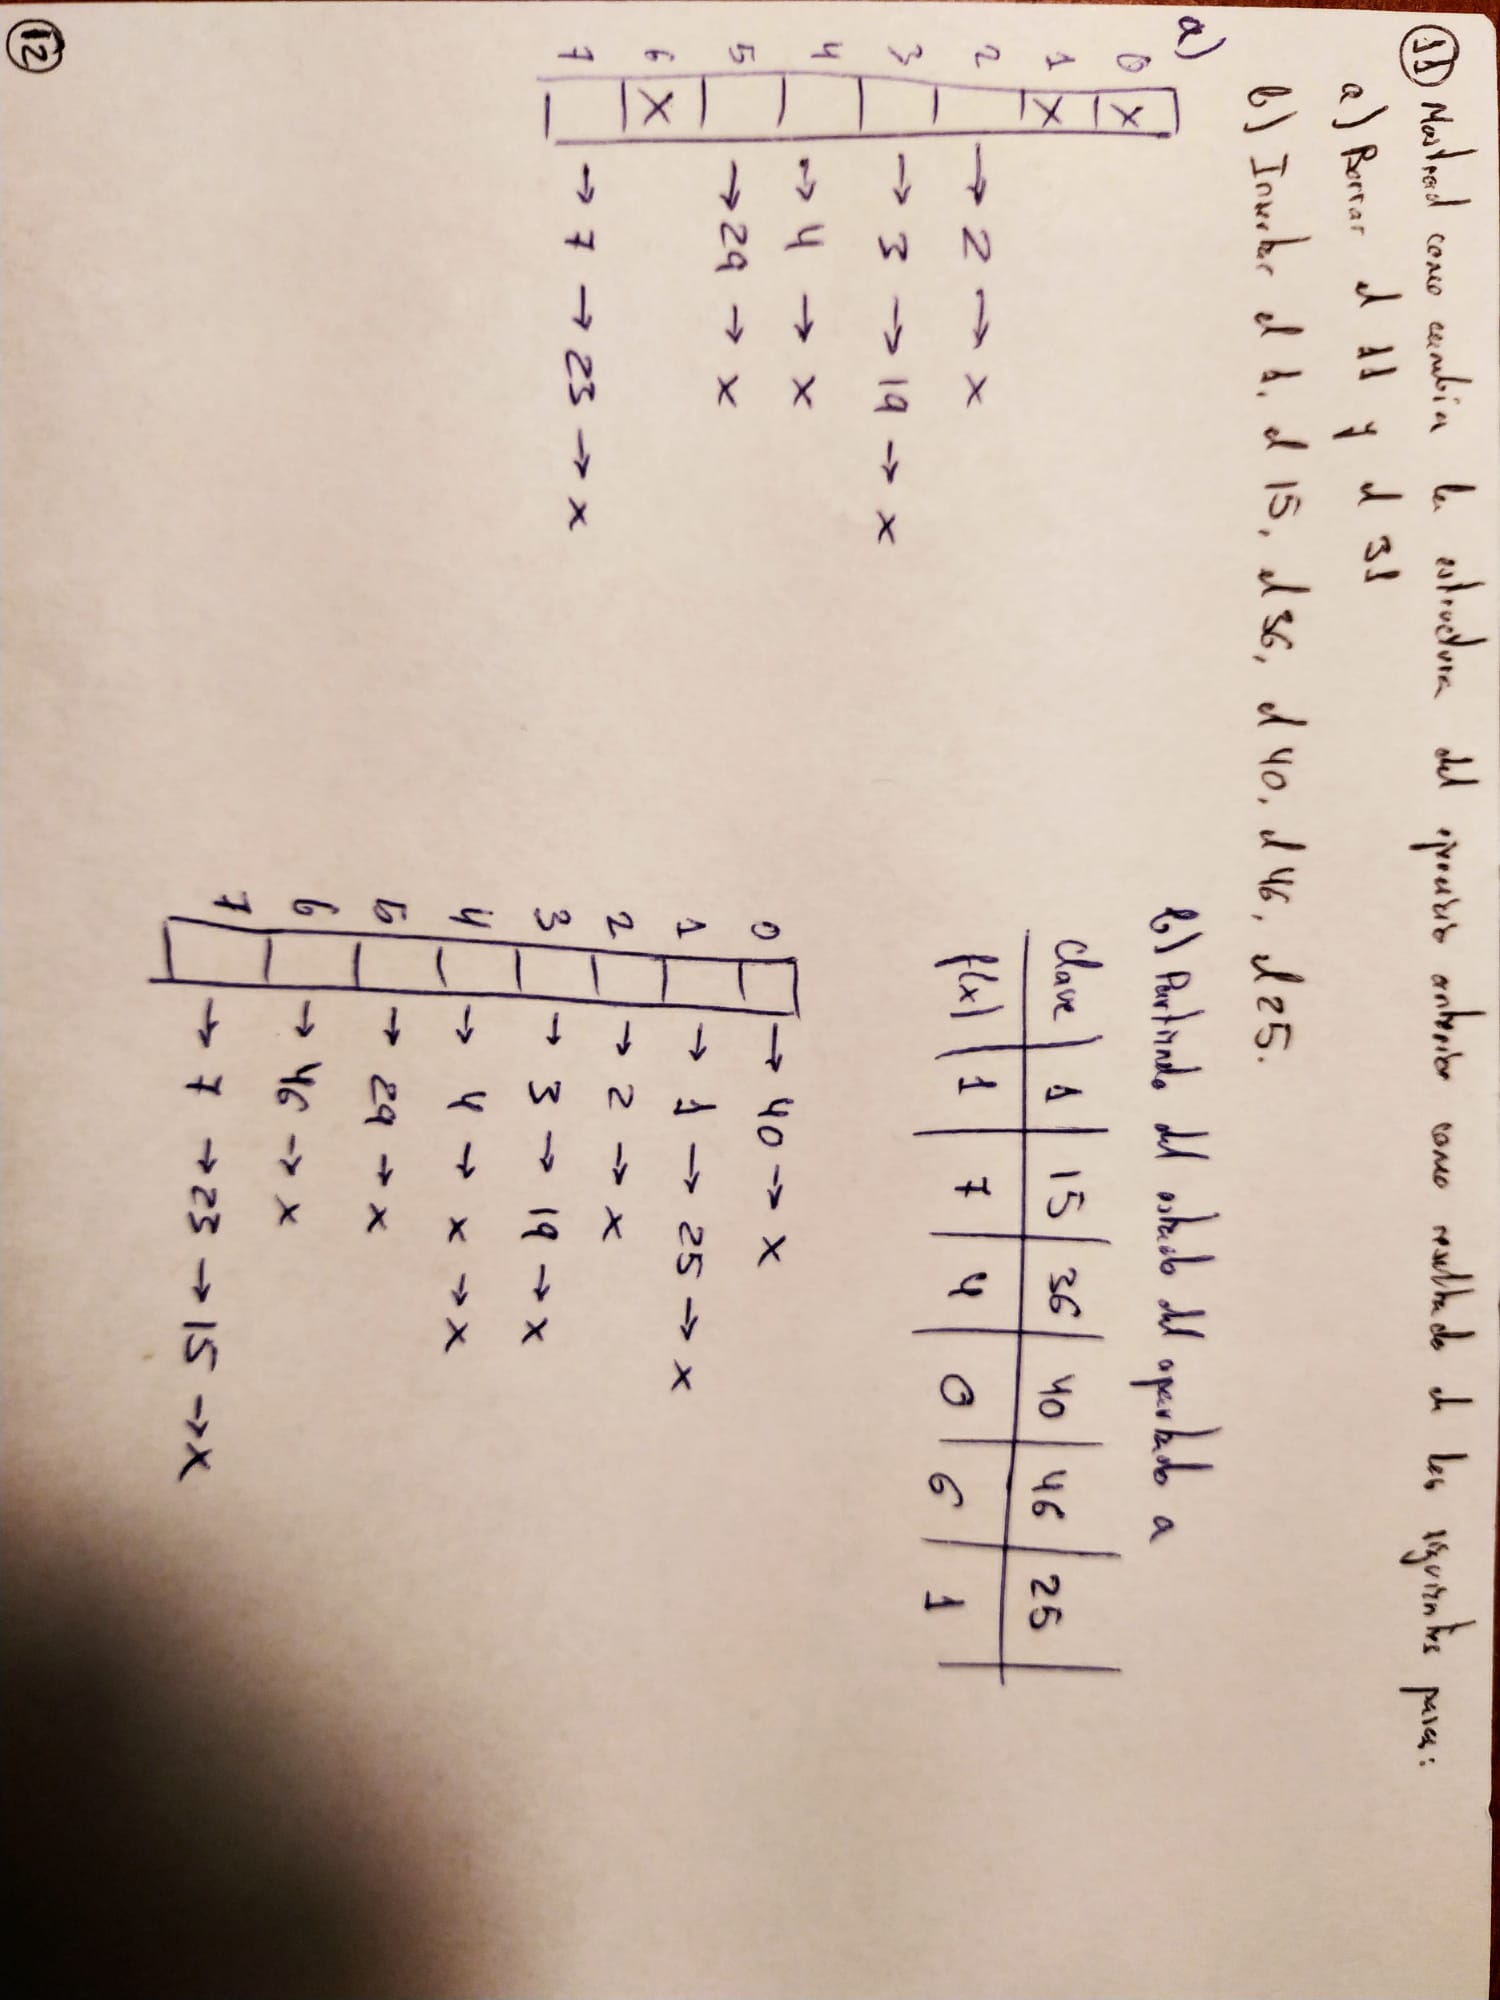 11) Mostrad como cambia la estructura del ejercicio anterior como resultado de las siguientes para:
a) Borrar el 11 y el 31
b) Insertar el 1, el 15, el 36, el 40, el 46, el 25.
a)
0 x
1 x
2 → 2 → x
3 → 3 → 19 → x
4 → 4 → x
5 → 29 → x
6 x
7 → 7 → 23 → x
b) Partiendo del estado del apartado a
clave | 1 | 15 | 36 | 40 | 46 | 25
f(x) | 1 | 7 | 4 | 0 | 6 | 1
0 → 40 → x
1 → 1 → 25 → x
2 → 2 → x
3 → 3 → 19 → x
4 → 4 → x → x
5 → 29 → x
6 → 46 → x
7 → 7 → 23 → 15 → x
12